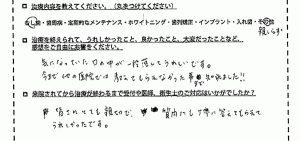 □ 治療内容を教えてください。(丸をつけてください)
むし歯・歯周病・定期的なメンテナンス・ホワイトニング・歯列矯正・インプラント・入れ歯・その他
親しらず
□ 治療を終えられて、うれしかったこと、良かったこと、大変だったことなど、
感想をご自由にお書きください。
気になっていた口の中が一段落してうれしいです。
今まで他の医院では 教えてもらえなかった 事まで知れました!!
□ 来院されてから治療が終わるまで受付や医師、衛生士のご対応はいかがでしたか?
皆さんとても親切で、質問にも丁寧に答えてもらえて
うれしかったです。